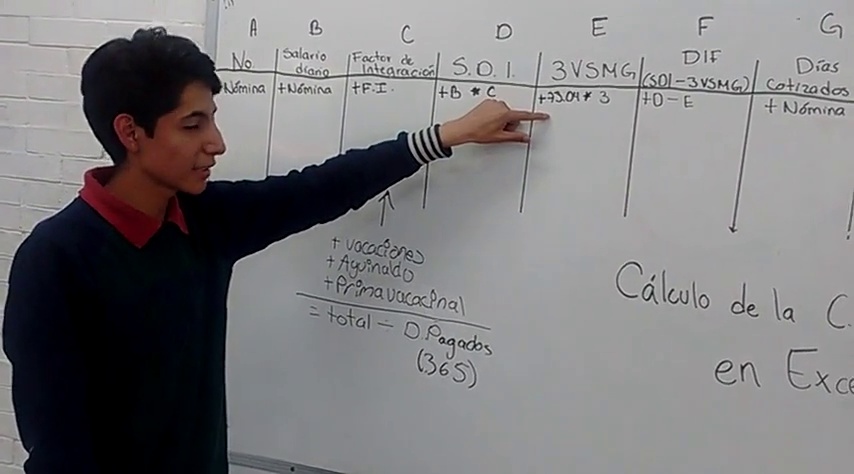 A B C D E F G
No Salario diario Factor de Integración S.D.I. 3VSMG DIF (SDI-3VSMG) Días Cotizados
Nómina +Nómina +F.I. +B * C +73.04 * 3 +D-E +Nómina
+ vacaciones
+ Aguinaldo
+ Prima vacacinal
= total ÷ D. Pagados
(365)
Cálculo de la C.
en Exce